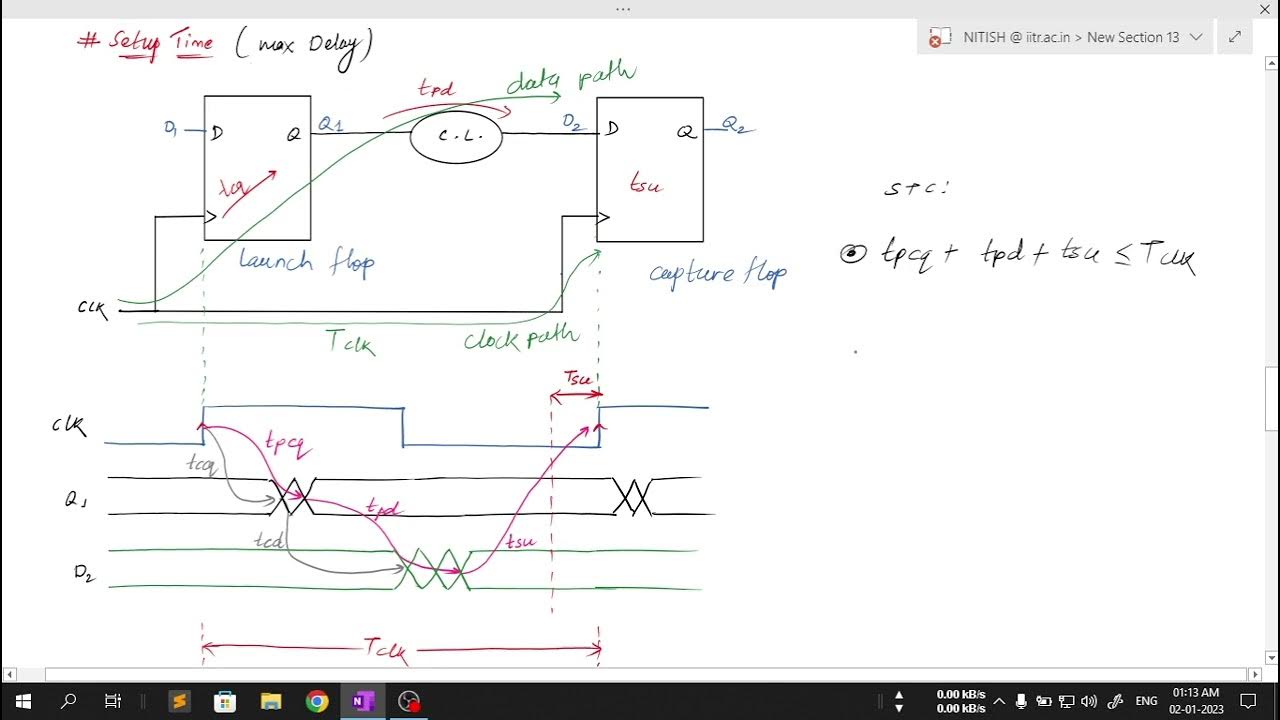 # Setup Time (max Delay)
NITISH @ iitr.ac.in > New Section 13
tpd
data path
D1
D
Q
Q1
C.L.
D2
D
Q
Q2
tcq
tsu
launch flop
capture flop
CLK
Tclk
clock path
STC:
tpcq + tpd + tsu ≤ Tclk
Tsu
CLK
tpcq
tcq
Q1
tpd
tcd
tsu
D2
Tclk
N
0.00 kB/s
0.00 kB/s
ENG
01:13 AM
02-01-2023